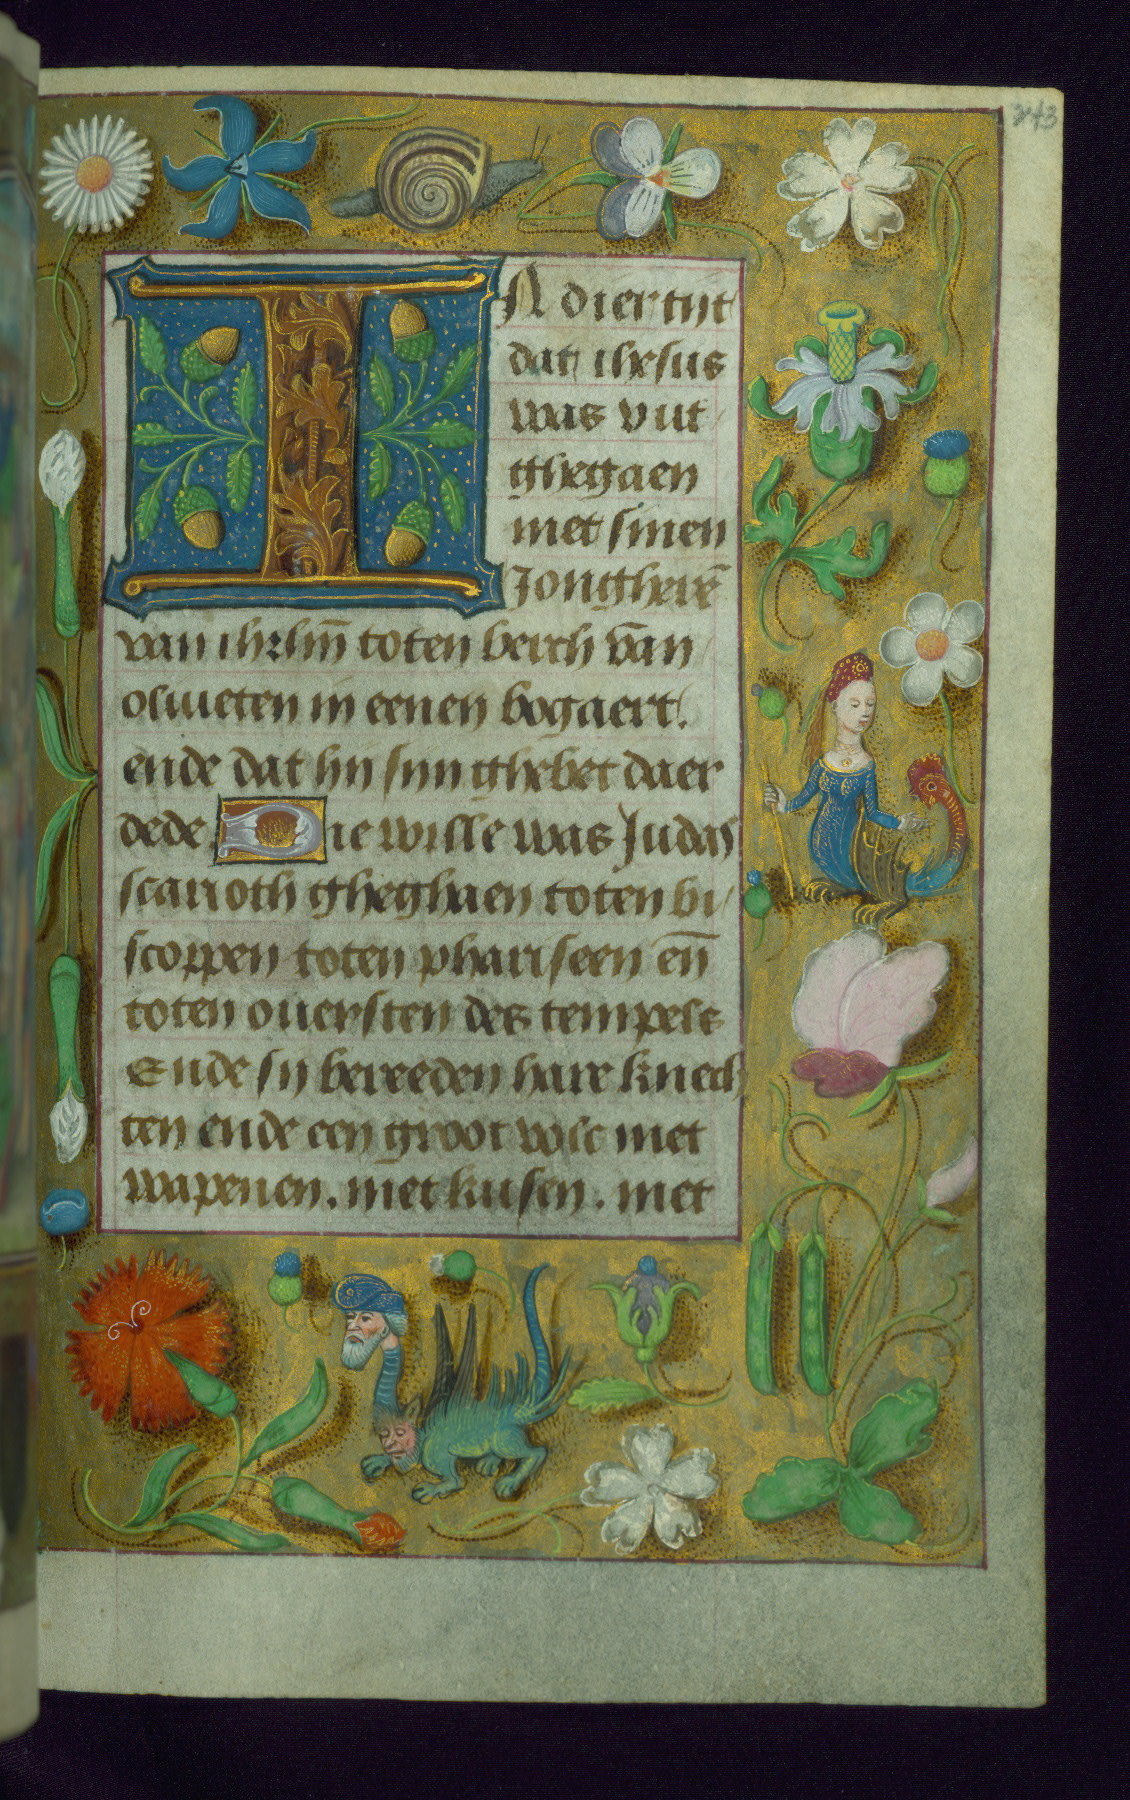 243
IN dier tijt
dat ihesus
was vut
ghegaen
met sinen
Jongherē
van ihrlm̄ toten berch vān
oliueten in eenen bogaert.
ende dat hij sijn ghebet daer
dede Die wille was Judas
scarioth gheghaen toten bi
scoppen toten phariseen en̄
toten ouersten des tempels
Ende sij bereeden hare knech
ten ende een groot volc met
wapenen. met kusen. met